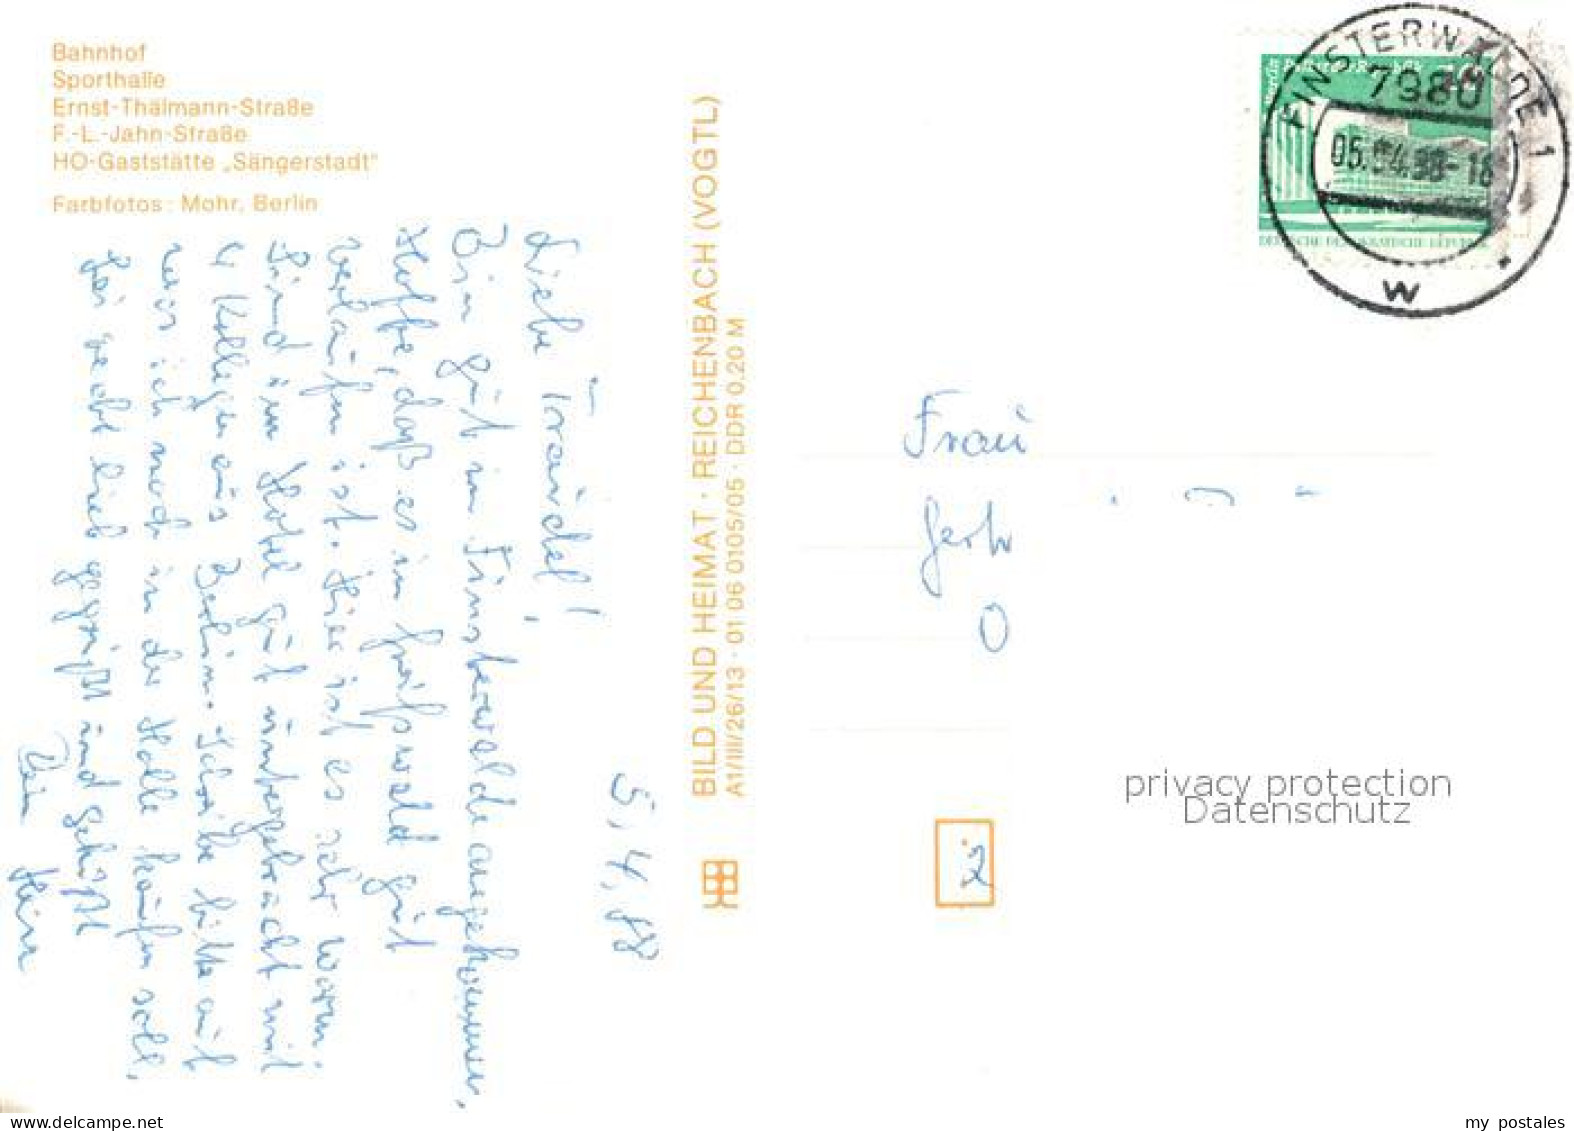 Bahnhof
Sporthalle
Ernst-Thälmann-Straße
F.-L.-Jahn-Straße
HO-Gaststätte „Sängerstadt"
Farbfotos: Mohr, Berlin
5.4.88
Liebe Traudel!
Bin gut in Finsterwalde angekommen,
Hoffe, daß es in Greifswald gut
verlaufen ist. Hier ist es sehr warm.
Sind im Hotel gut untergebracht mit
4 Kollegen aus Berlin. Schreibe bitte auf
was ich noch in der Halle kaufen soll.
Sei recht lieb gegrüßt und geküßt
Dein
BILD UND HEIMAT · REICHENBACH (VOGTL)
A1/III/26/13 · 01 06 0105/05 · DDR 0,20 M
FINSTERWALDE 1
7980
05.04.88-18
w
DEUTSCHE DEMOKRATISCHE REPUBLIK
Frau
2
privacy protection
Datenschutz
www.delcampe.net
my postales